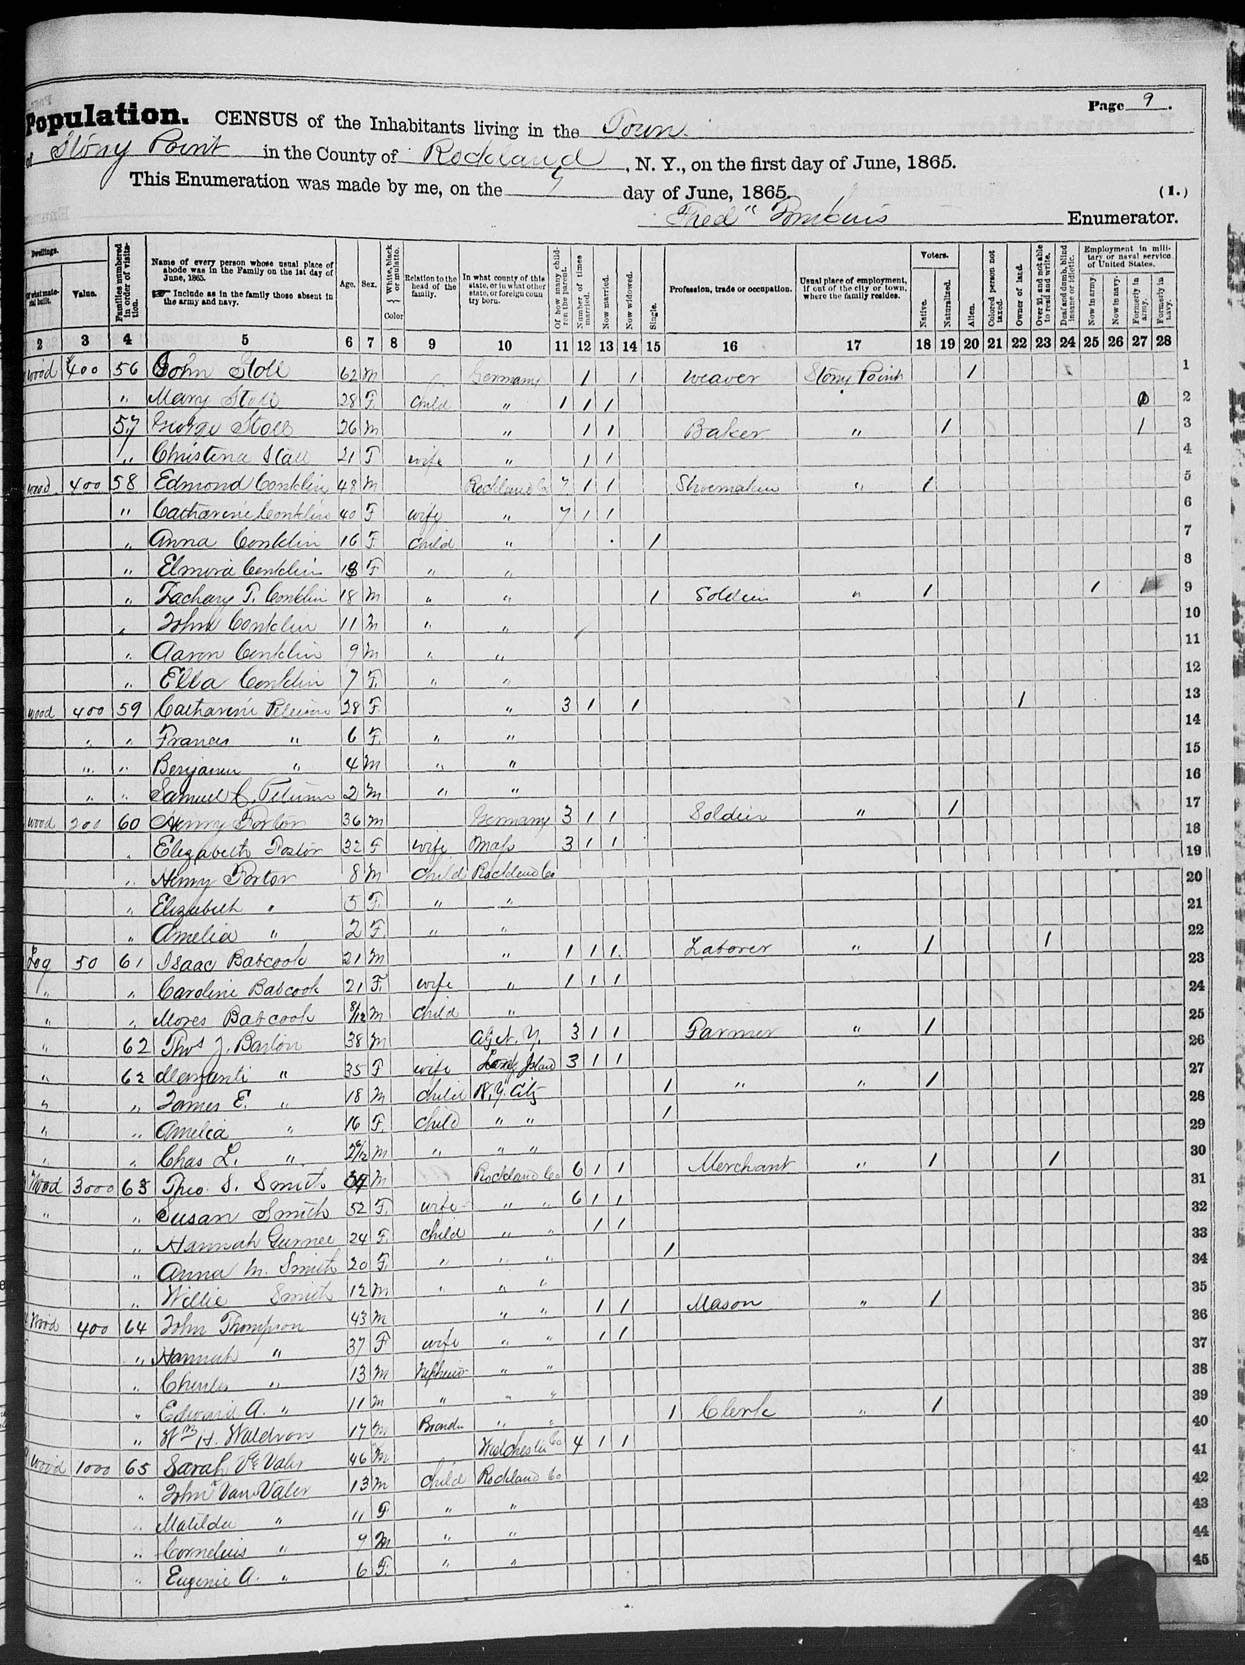 Population. CENSUS of the Inhabitants living in the Town Page 9.
of Stony Point in the County of Rockland, N. Y., on the first day of June, 1865.
This Enumeration was made by me, on the 7 day of June, 1865. (1.)
Fred Enumerator.
Dwellings. Value. Families numbered in order of visitation. Name of every person whose usual place of abode was in the Family on the 1st day of June, 1865. Include as in the family those absent in the army and navy. Age. Sex. White, black or mulatto. Color Relation to the head of the family. In what county of this state, or in what other state, or foreign country born. Of how many children the parent. Number of times married. Now married. Now widowed. Single. Profession, trade or occupation. Usual place of employment, if out of the city or town, where the family resides. Voters. Native. Naturalized. Alien. Colored person not taxed. Owner of land. Over 21, and not able to read and write. Deaf and dumb, blind insane or idiotic. Employment in military or naval service of United States. Now in army. Now in navy. Formerly in army. Formerly in navy.
2 3 4 5 6 7 8 9 10 11 12 13 14 15 16 17 18 19 20 21 22 23 24 25 26 27 28
Wood 400 56 John Stoll 62 M Germany 1 1 Weaver Stony Point 1 1
" Mary Stoll 28 F Child " 1 1 1 2
57 George Stoll 26 M " 1 1 Baker " 1 1 3
" Christina Stoll 21 F wife " 1 1 4
Wood 400 58 Edmond Conklin 48 M Rockland Co 7 1 1 Shoemaker " 1 5
" Catharine Conklin 40 F wife " 7 1 1 6
" Anna Conklin 16 F Child " 1 7
" Elmira Conklin 13 F " " 8
" Zachary T. Conklin 18 M " " 1 Soldier " 1 1 9
" John Conklin 11 M " " 10
" Aaron Conklin 9 M " " 11
" Ella Conklin 7 F " " 12
Wood 400 59 Catharine 28 F " 3 1 1 1 13
" " Francis " 6 F " " 14
" " Benjamin " 4 M " " 15
" " Samuel C. 2 M " " 16
Wood 200 60 Henry Portor 36 M Germany 3 1 1 Soldier " 1 17
" Elizabeth Portor 32 F wife Mass 3 1 1 18
" Henry Portor 8 M Child Rockland Co 19
" Elizabeth " 5 F " " 20
" Amelia " 2 F " " 21
Log 50 61 Isaac Babcock 21 M " 1 1 1 Laborer " 1 1 22
" " Caroline Babcock 21 F wife " 1 1 1 23
" " Moses Babcock 8/12 M Child " 24
" 62 Thos J. Barlon 38 M N. Y. 3 1 1 Farmer " 1 25
" 62 " 35 F wife Long Island 3 1 1 26
" " James E. " 18 M Child N. Y. City 1 " " 1 27
" " Amelia " 16 F Child " " 1 28
" " Chas L. " M " " " 29
Wood 3000 63 Theo. S. Smith 54 M Rockland Co 6 1 1 Merchant " 1 1 30
" " Susan Smith 52 F wife " " 6 1 1 31
" Hannah Gurnee 24 F Child " " 1 1 32
" Anna M. Smith 20 F " " " 1 33
" Willie Smith 12 M " " " 34
Wood 400 64 John Thompson 43 M " " 1 1 Mason " 1 35
" Hannah " 37 F wife " " 1 1 36
" Charles " 13 M Nephew " " 37
" Edward A. " 11 M " " " 38
" Wm H. Waldron 17 M " " 1 Clerk " 1 39
Wood 1000 65 Sarah Vn Valer 46 M Westchester Co 4 1 1 40
" John Van Valer 13 M Child Rockland Co 41
" Matilda " 11 F " " 42
" Cornelius " 9 M " " 43
" Eugenie A. " 6 F " " 44
45